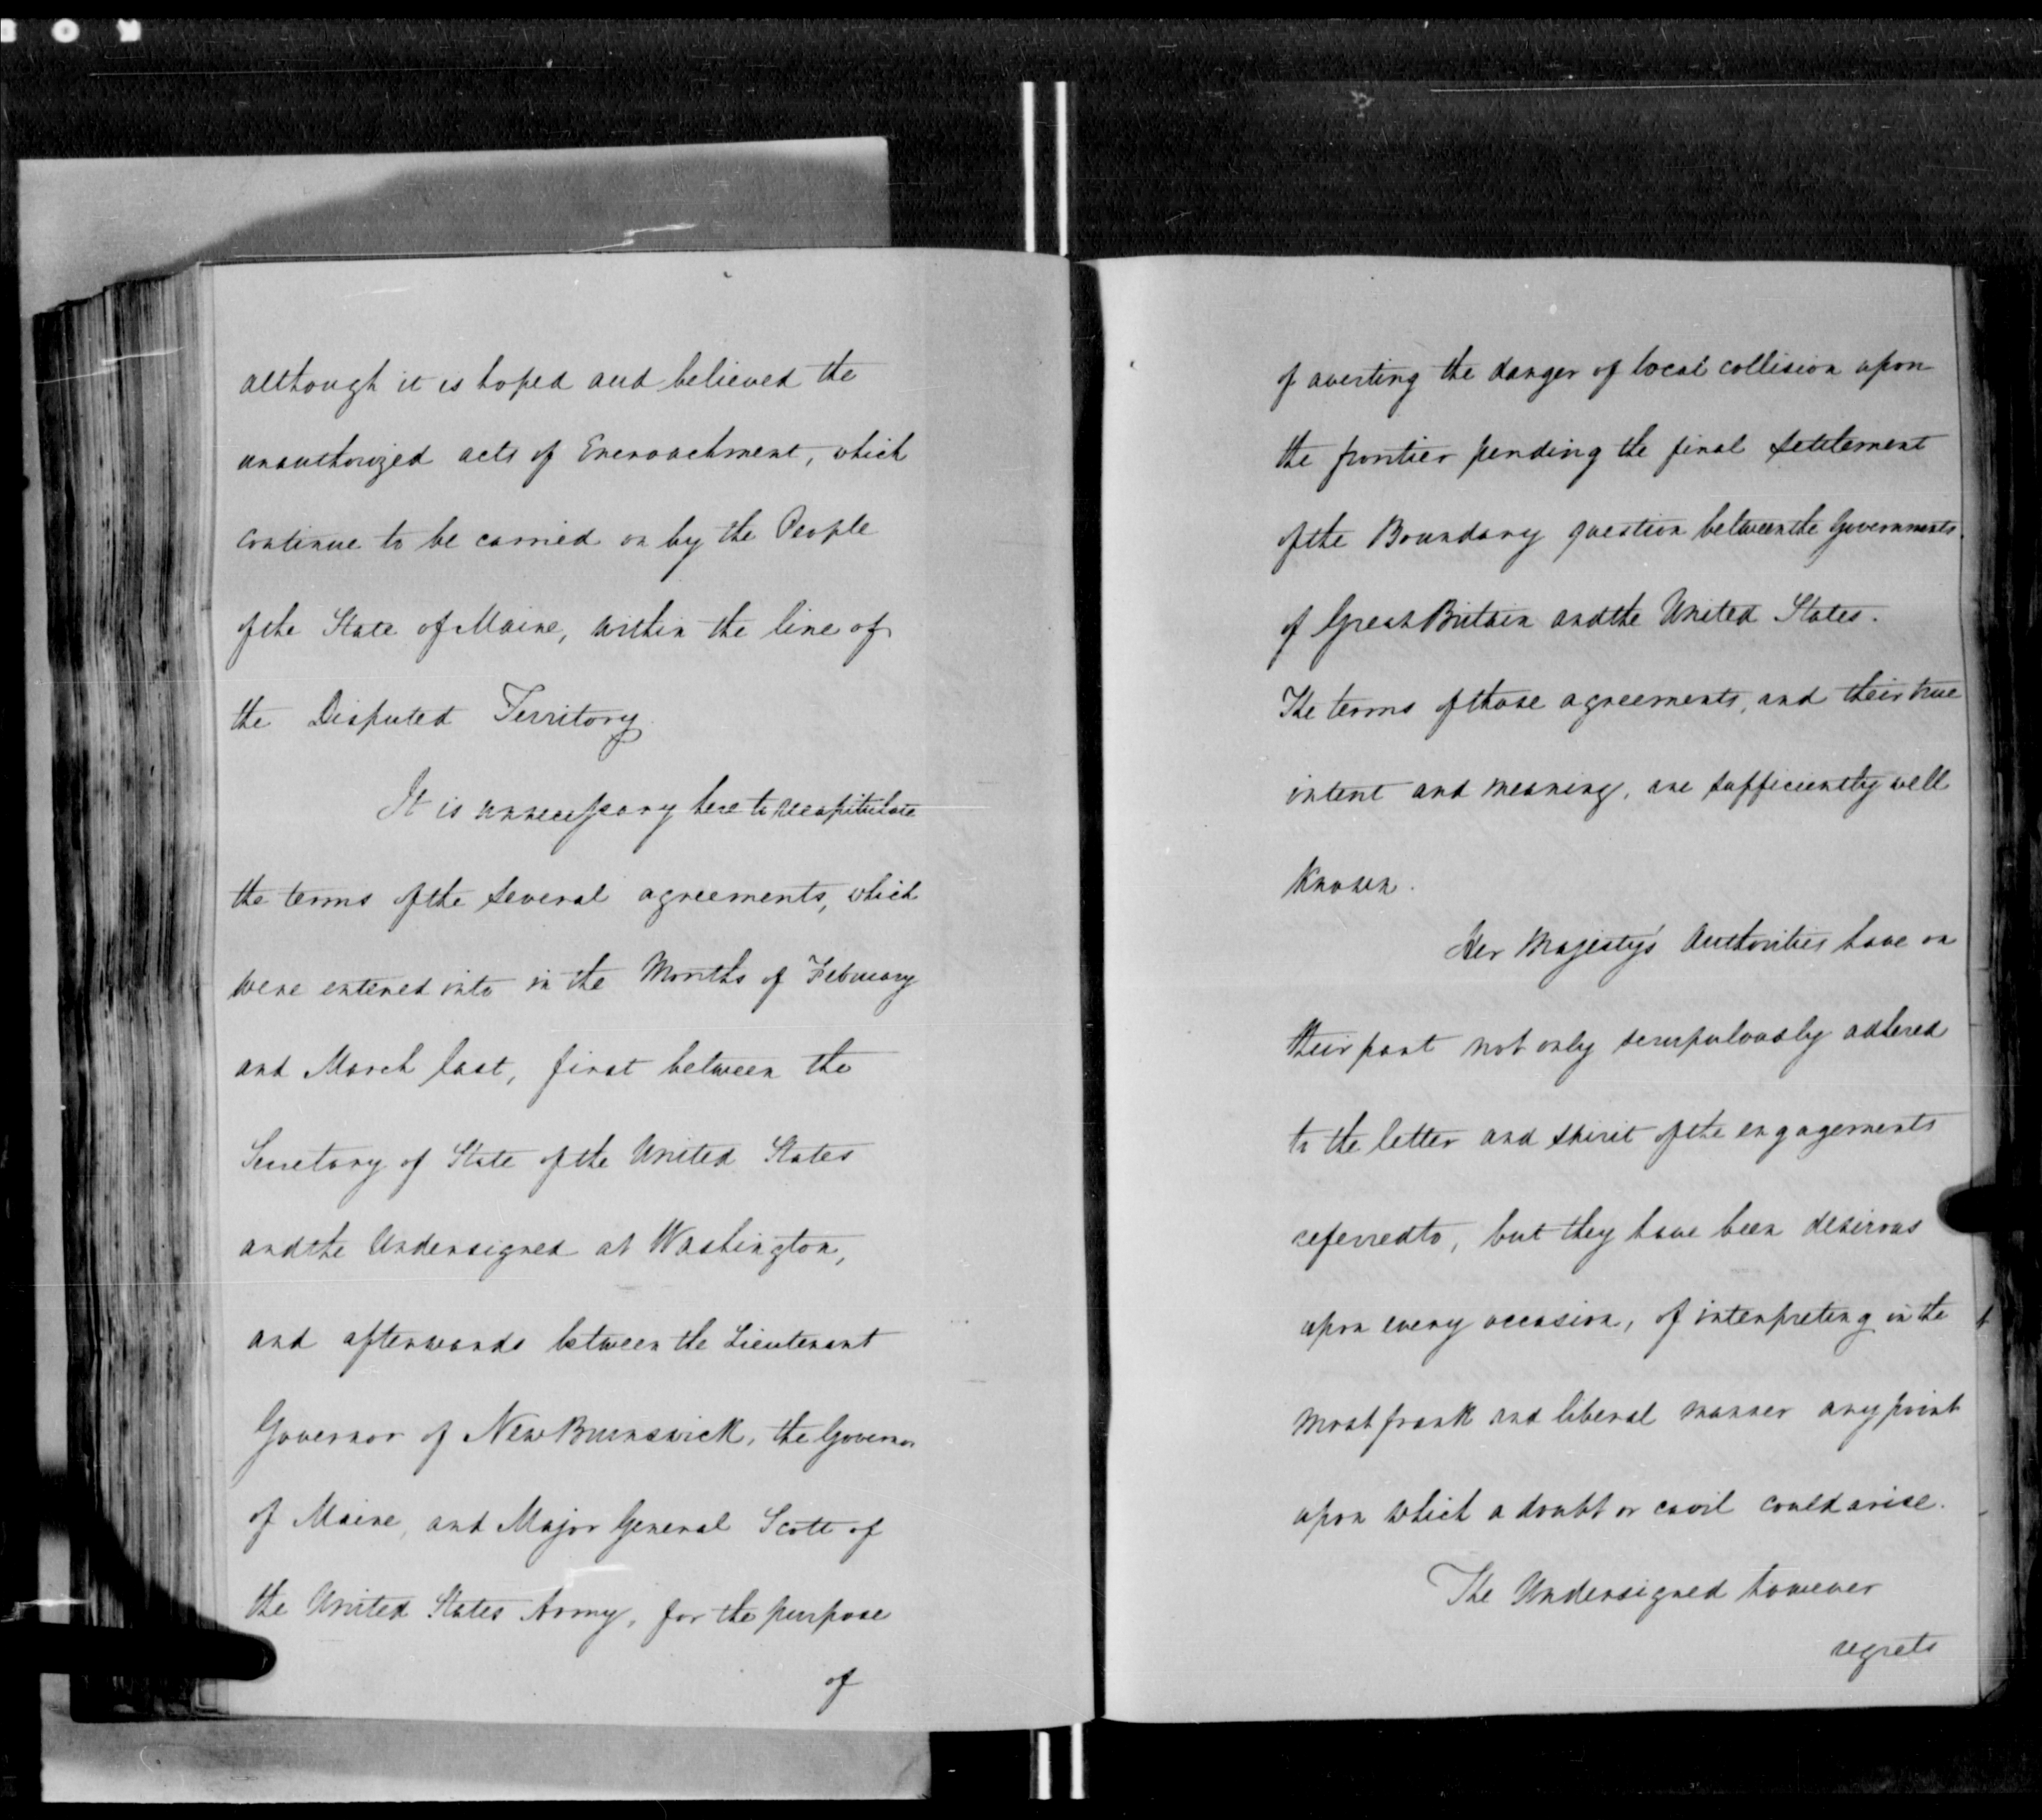 although it is hoped and believed the
unauthorized acts of Encroachment, which
continue to be carried on by the People
of the State of Maine, within the line of
the Disputed Territory.
It is unnecessary here to recapitulate
the terms of the several agreements, which
were entered into in the Months of February
and March last, first between the
Secretary of State of the United States
and the Undersigned at Washington,
and afterwards between the Lieutenant
Governor of New Brunswick, the Governor
of Maine, and Major General Scott of
the United States Army, for the purpose
of
of averting the danger of local collision upon
the frontier pending the final settlement
of the Boundary question between the Governments
of Great Britain and the United States.
The terms of those agreements, and their true
intent and meaning, are sufficiently well
known.
Her Majesty's Authorities have on
their part not only scrupulously adhered
to the letter and spirit of the engagements
referred to, but they have been desirous
upon every occasion, of interpreting in the
most frank and liberal manner any point
upon which a doubt or cavil could arise.
The Undersigned however
regrets